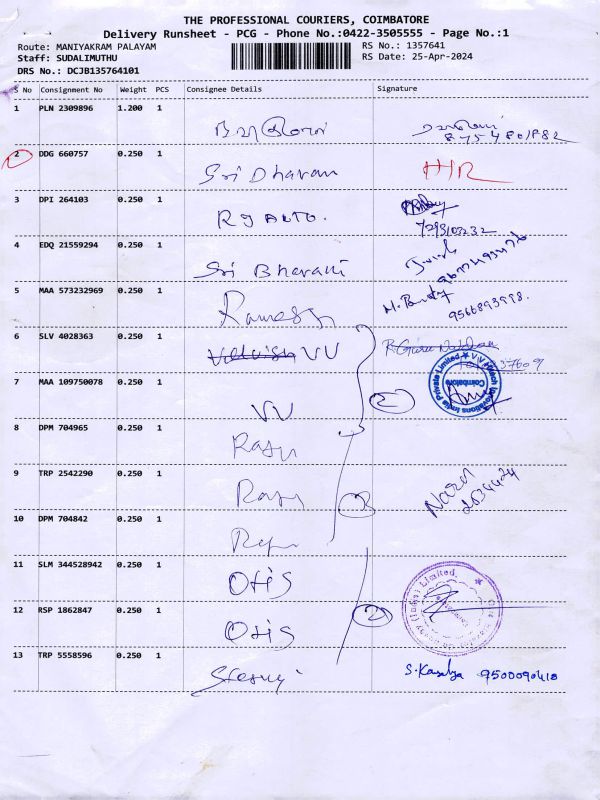 THE PROFESSIONAL COURIERS, COIMBATORE
Delivery Runsheet - PCG - Phone No.:0422-3505555 - Page No.:1
Route: MANIYAKRAM PALAYAM
RS No.: 1357641
Staff: SUDALIMUTHU
RS Date: 25-Apr-2024
DRS No.: DCJB135764101
S No Consignment No Weight PCS Consignee Details Signature
1 PLN 2309896 1.200 1
8754801882
2 DDG 660757 0.250 1 Sri Dharan HR
3 DPI 264103 0.250 1 RJ AUTO.
7293103232
4 EDQ 21559294 0.250 1 Sri Bharani
5 MAA 573232969 0.250 1 Ramesh
9566893998.
6 SLV 4028363 0.250 1 VV
7 MAA 109750078 0.250 1 VV 2
8 DPM 704965 0.250 1 Raju
9 TRP 2542290 0.250 1 Raju 3
10 DPM 704842 0.250 1 Raju
11 SLM 344528942 0.250 1 Otis
12 RSP 1862847 0.250 1 Otis 2
13 TRP 5558596 0.250 1 S.Kausalya 9500090418